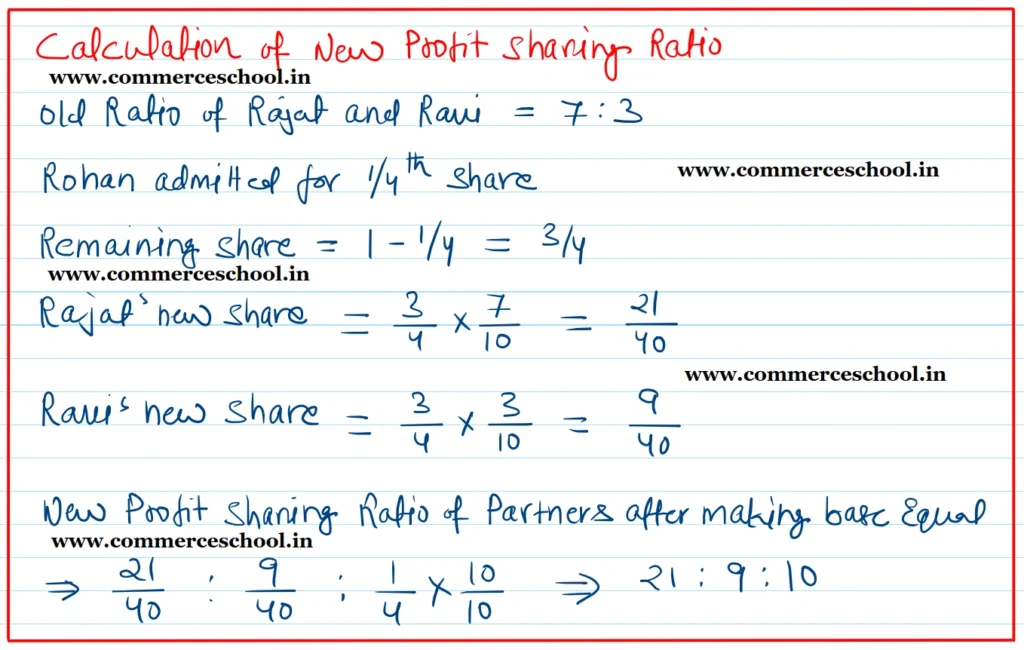 Calculation of New Profit Sharing Ratio
www.commerceschool.in
Old Ratio of Rajat and Ravi = 7 : 3
Rohan admitted for 1/4th share
www.commerceschool.in
Remaining share = 1 - 1/4 = 3/4
www.commerceschool.in
Rajat's new share = 3/4 × 7/10 = 21/40
www.commerceschool.in
Ravi's new share = 3/4 × 3/10 = 9/40
New Profit Sharing Ratio of Partners after making base Equal
www.commerceschool.in
⇒ 21/40 : 9/40 : 1/4 × 10/10 ⇒ 21 : 9 : 10